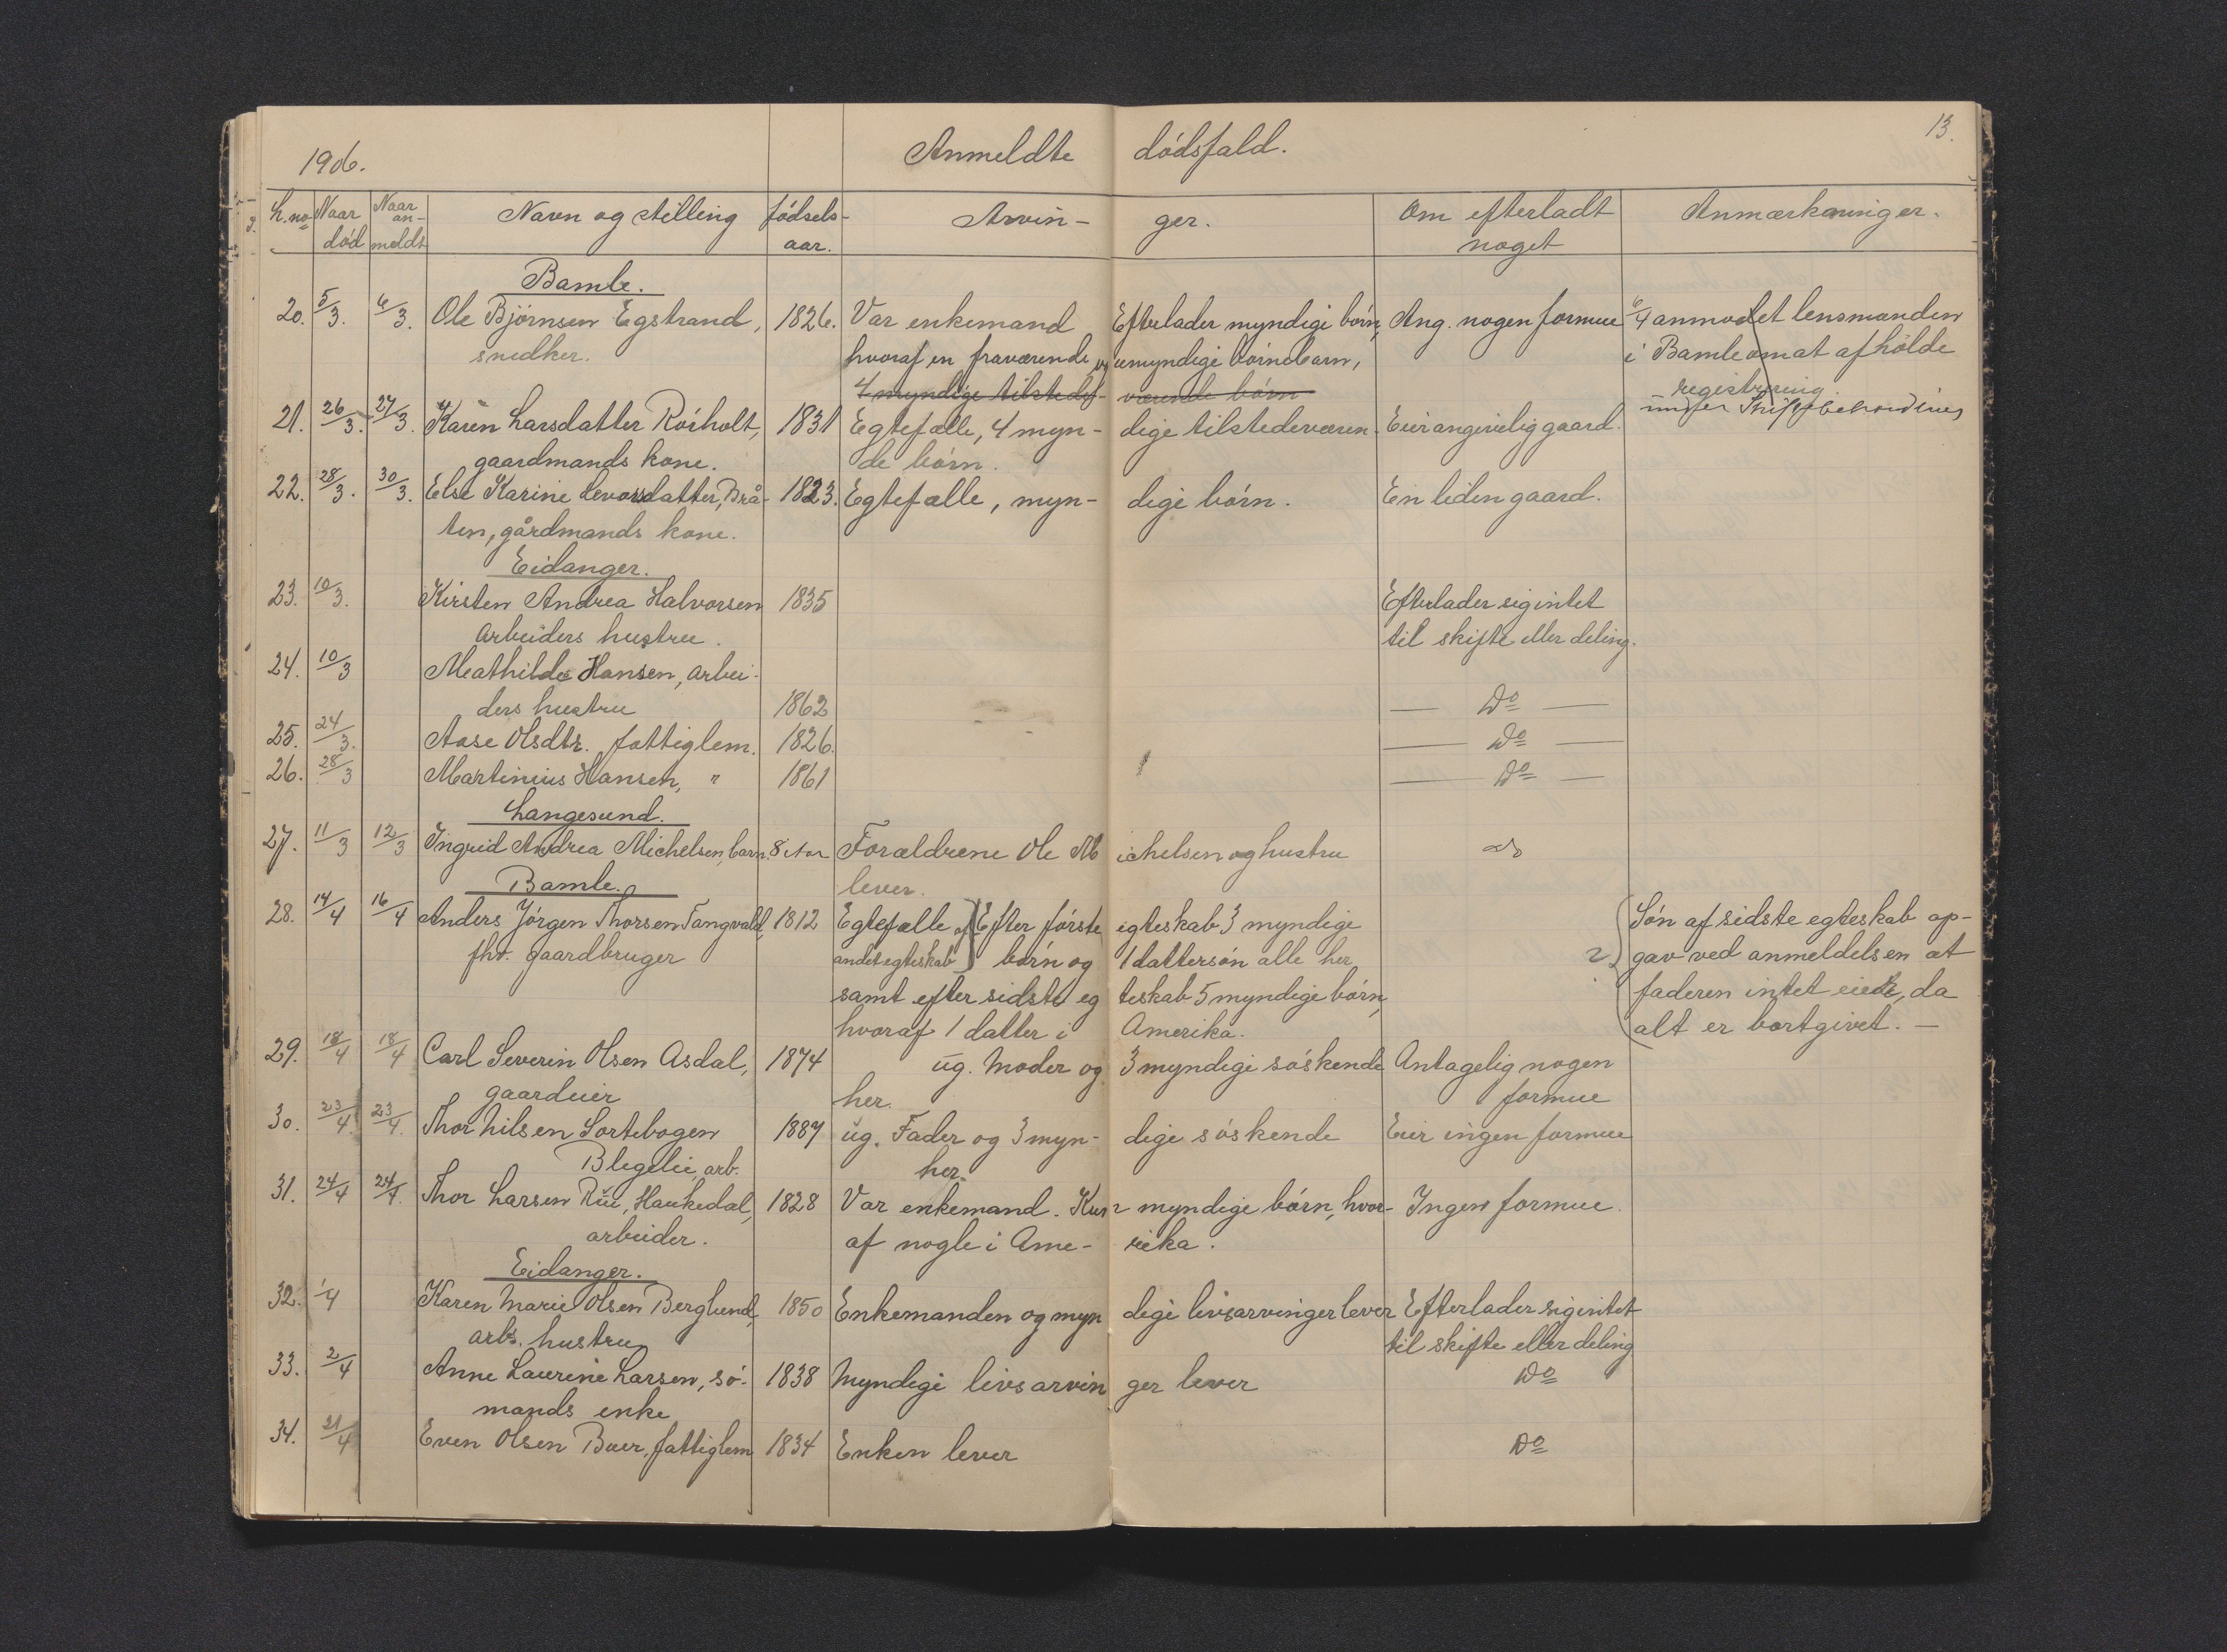 13.
1906. Anmeldte dødsfald.
L.no Naar død Naar an-meldt Navn og stilling fødsels-aar. Arvin-ger. Om efterladt noget Anmærkninger.
Bamle.
20. 5/3. 6/3. Ole Bjørnsen Egstrand, 1826. Var enkemand Efterlader myndige børn, Ang. nogen formue 6/4 anmodet lensmanden
snedker. hvoraf en fraværende og umyndige børnebarn, i Bamle om at afholde
4 myndige tilstede- værende børn registrering
under Skiftebehandling
21. 26/3. 27/3. Karen Larsdatter Rørholt, 1831 Egtefælle, 4 myn- dige tilstedeværen- Eier angivelig gaard.
gaardmands kone. de børn.
22. 28/3. 30/3. Else Karine Levorsdatter, Brå- 1823. Egtefælle, myn- dige børn. En liden gaard.
ten, gårdmands kone.
Eidanger.
23. 10/3. Kirsten Andrea Halvorsen 1835 Efterlader sig intet
arbeiders hustru. til skifte eller deling.
24. 10/3 Mathilde Hansen, arbei-
ders hustru 1862 — Do —
25. 24/3. Aase Olsdtr. fattiglem. 1826. — Do —
26. 28/3 Martinius Hansen, " 1861 — Do —
Langesund.
27. 11/3 12/3 Ingrid Andrea Michelsen, barn. 8 Aar Forældrene Ole M ichelsen og hustru do
Bamle. lever.
28. 14/4 16/4 Anders Jørgen Thorsen Tangvald, 1812 Egtefælle af Efter første egteskab 3 myndige Søn af sidste egteskab op-
fhv. gaardbruger andet egteskab børn og 1 dattersøn alle her ? gav ved anmeldelsen at
samt efter sidste eg teskab 5 myndige børn, faderen intet eiede, da
hvoraf 1 datter i Amerika. alt er bortgivet. —
29. 18/4 18/4 Carl Severin Olsen Asdal, 1874 ug. Moder og 3 myndige søskende Antagelig nogen
gaardeier her. formue
30. 23/4. 23/4. Thor Nilsen Sortebogen 1887 ug. Fader og 3 myn- dige søskende Eier ingen formue
Blegelie, arb. her.
31. 24/4 24/4. Thor Larsen Rui, Haukedal, 1828 Var enkemand. Kun 2 myndige børn, hvor- Ingen formue.
arbeider. af nogle i Ame- rika.
Eidanger.
32. 1/4 Karen Marie Olsen Berglund, 1850 Enkemanden og myn dige livsarvinger lever Efterlader sig intet
arbs. hustru til skifte eller deling
33. 2/4 Anne Laurine Larsen, sø- 1838 Myndige livsarvin ger lever Do
mands enke
34. 21/4 Even Olsen Buer, fattiglem 1834 Enken lever Do